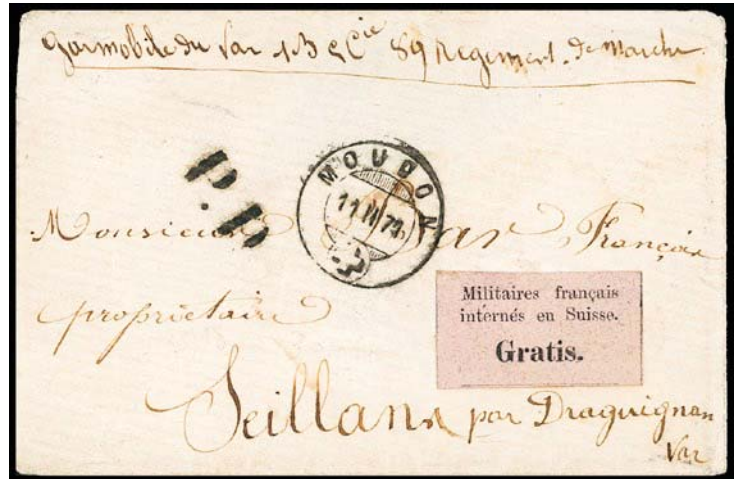 garmobile du Var 1 B 5 Cie 89 Regiment. de marche
P.P.
MOUDON
11 III 71
Monsieur François
propriétaire
Militaires français
internés en Suisse.
Gratis.
Seillans par Draguignan
Var